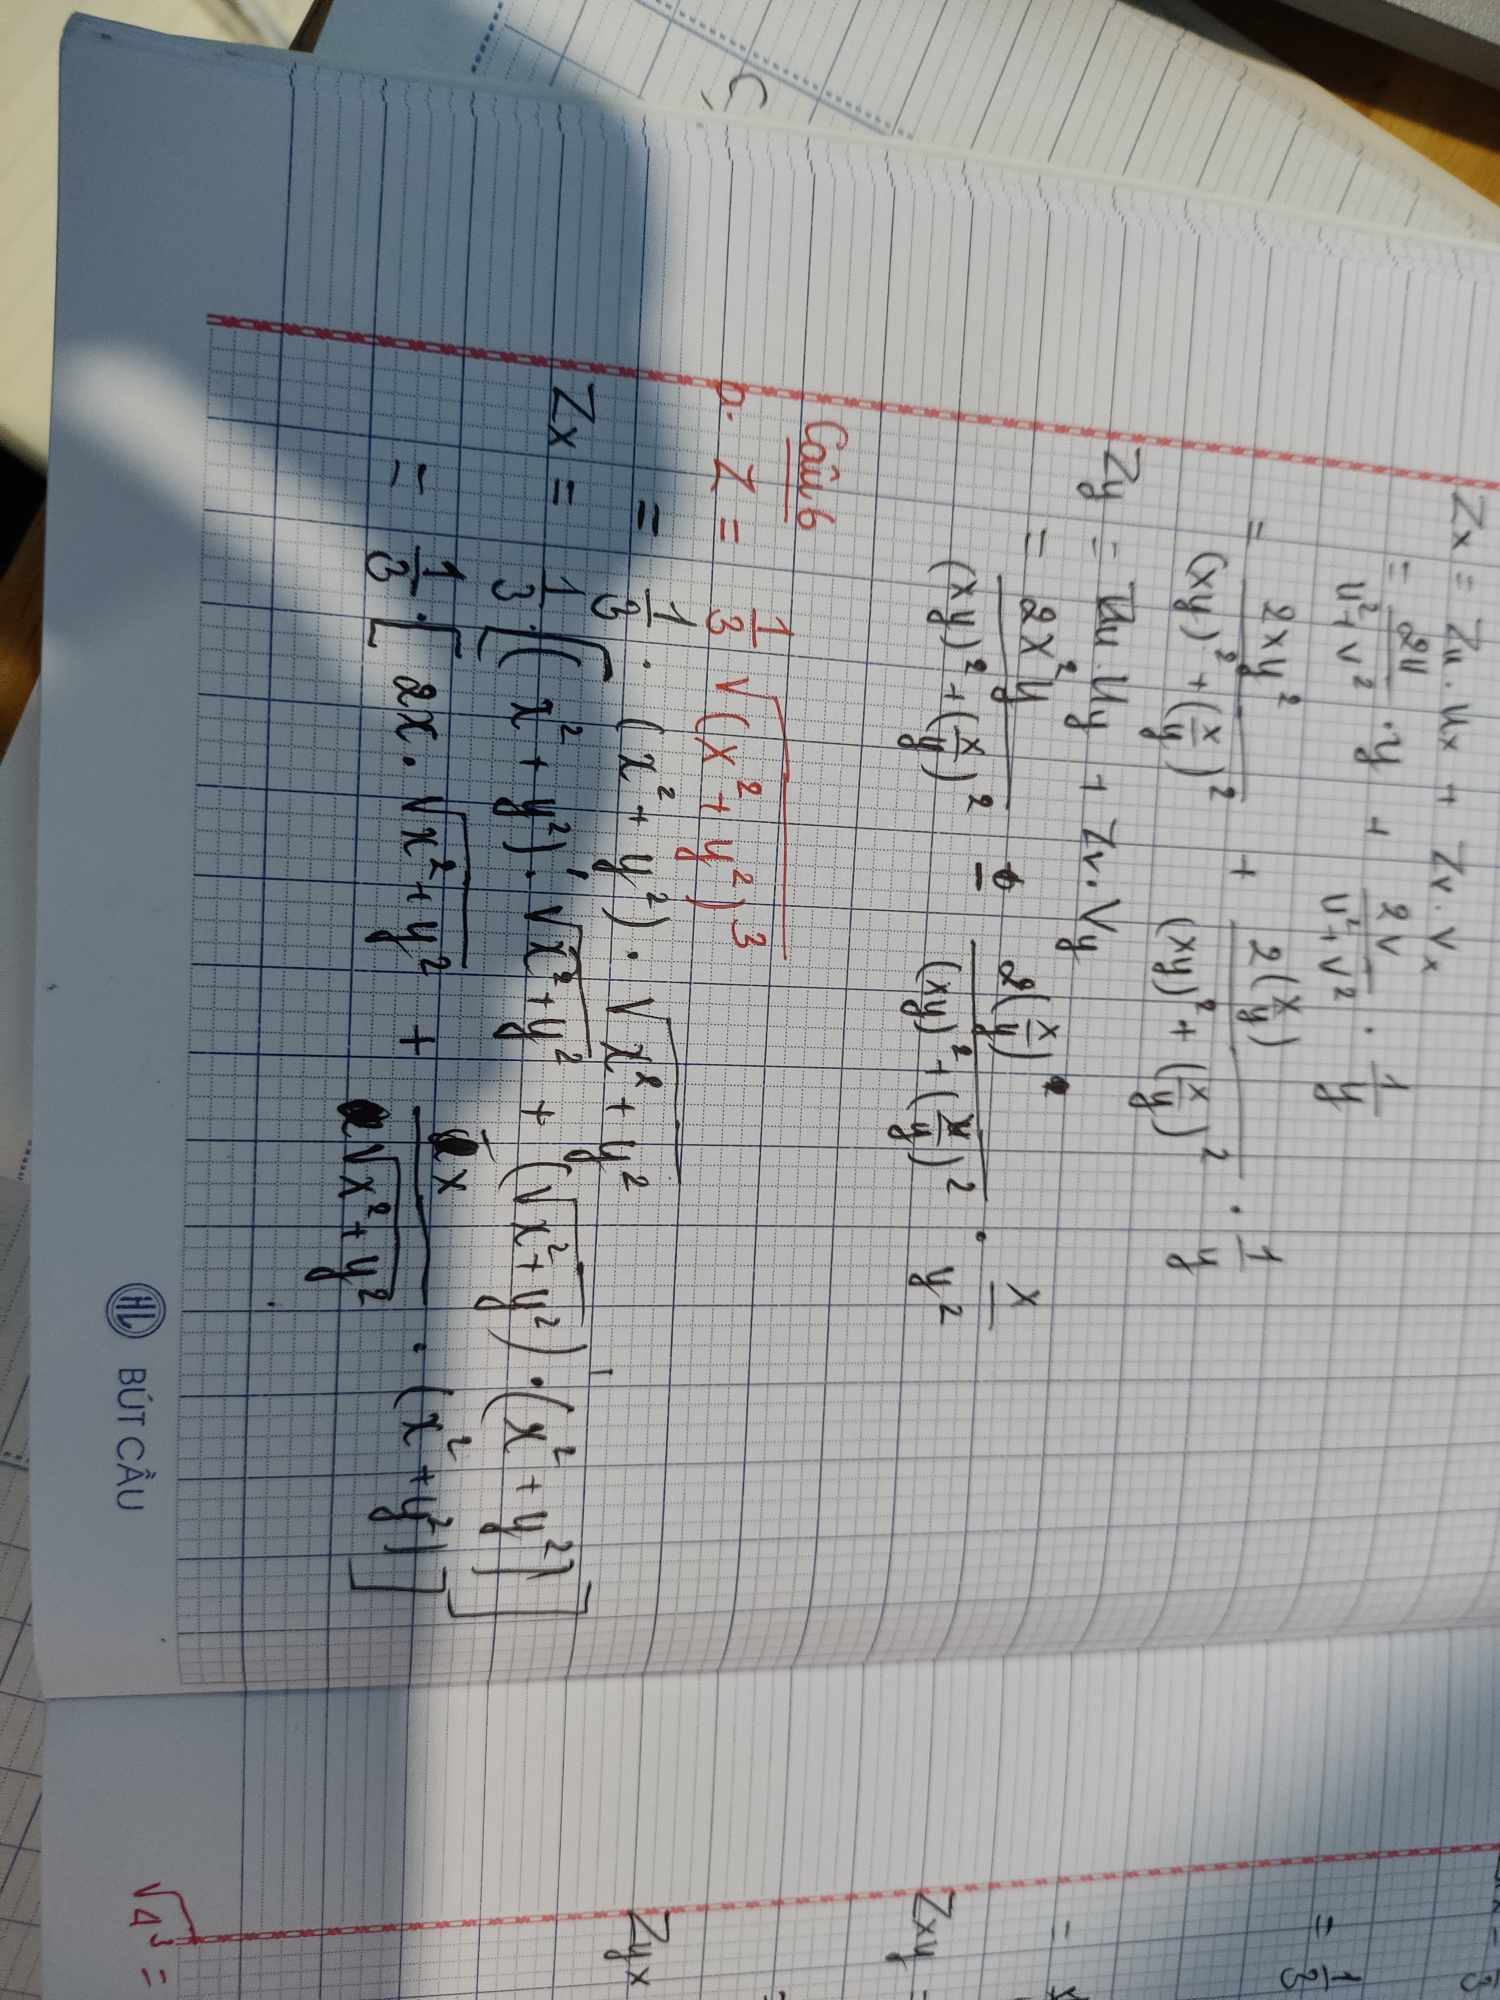 Zx = Zu . Ux + Zv . Vx
= 2u/(u²+v²) · y + 2v/(u²+v²) · 1/y
= 2xy²/((xy)²+(x/y)²) + 2(x/y)/((xy)²+(x/y)²) · 1/y
Zy = Zu . Uy + Zv . Vy
= 2x²y/((xy)²+(x/y)²) - 2(x/y)/((xy)²+(x/y)²) · x/y²
Câu 6
a. Z = 1/3 √((x²+y²)³)
= 1/3 · (x²+y²) · √(x²+y²)
Zx = 1/3 · [(x²+y²)' · √(x²+y²) + (√(x²+y²))' · (x²+y²)]
= 1/3 · [2x · √(x²+y²) + x/√(x²+y²) · (x²+y²)]
HL BÚT CẦU
= 1/3
Zxy =
Zyx
√4³ =